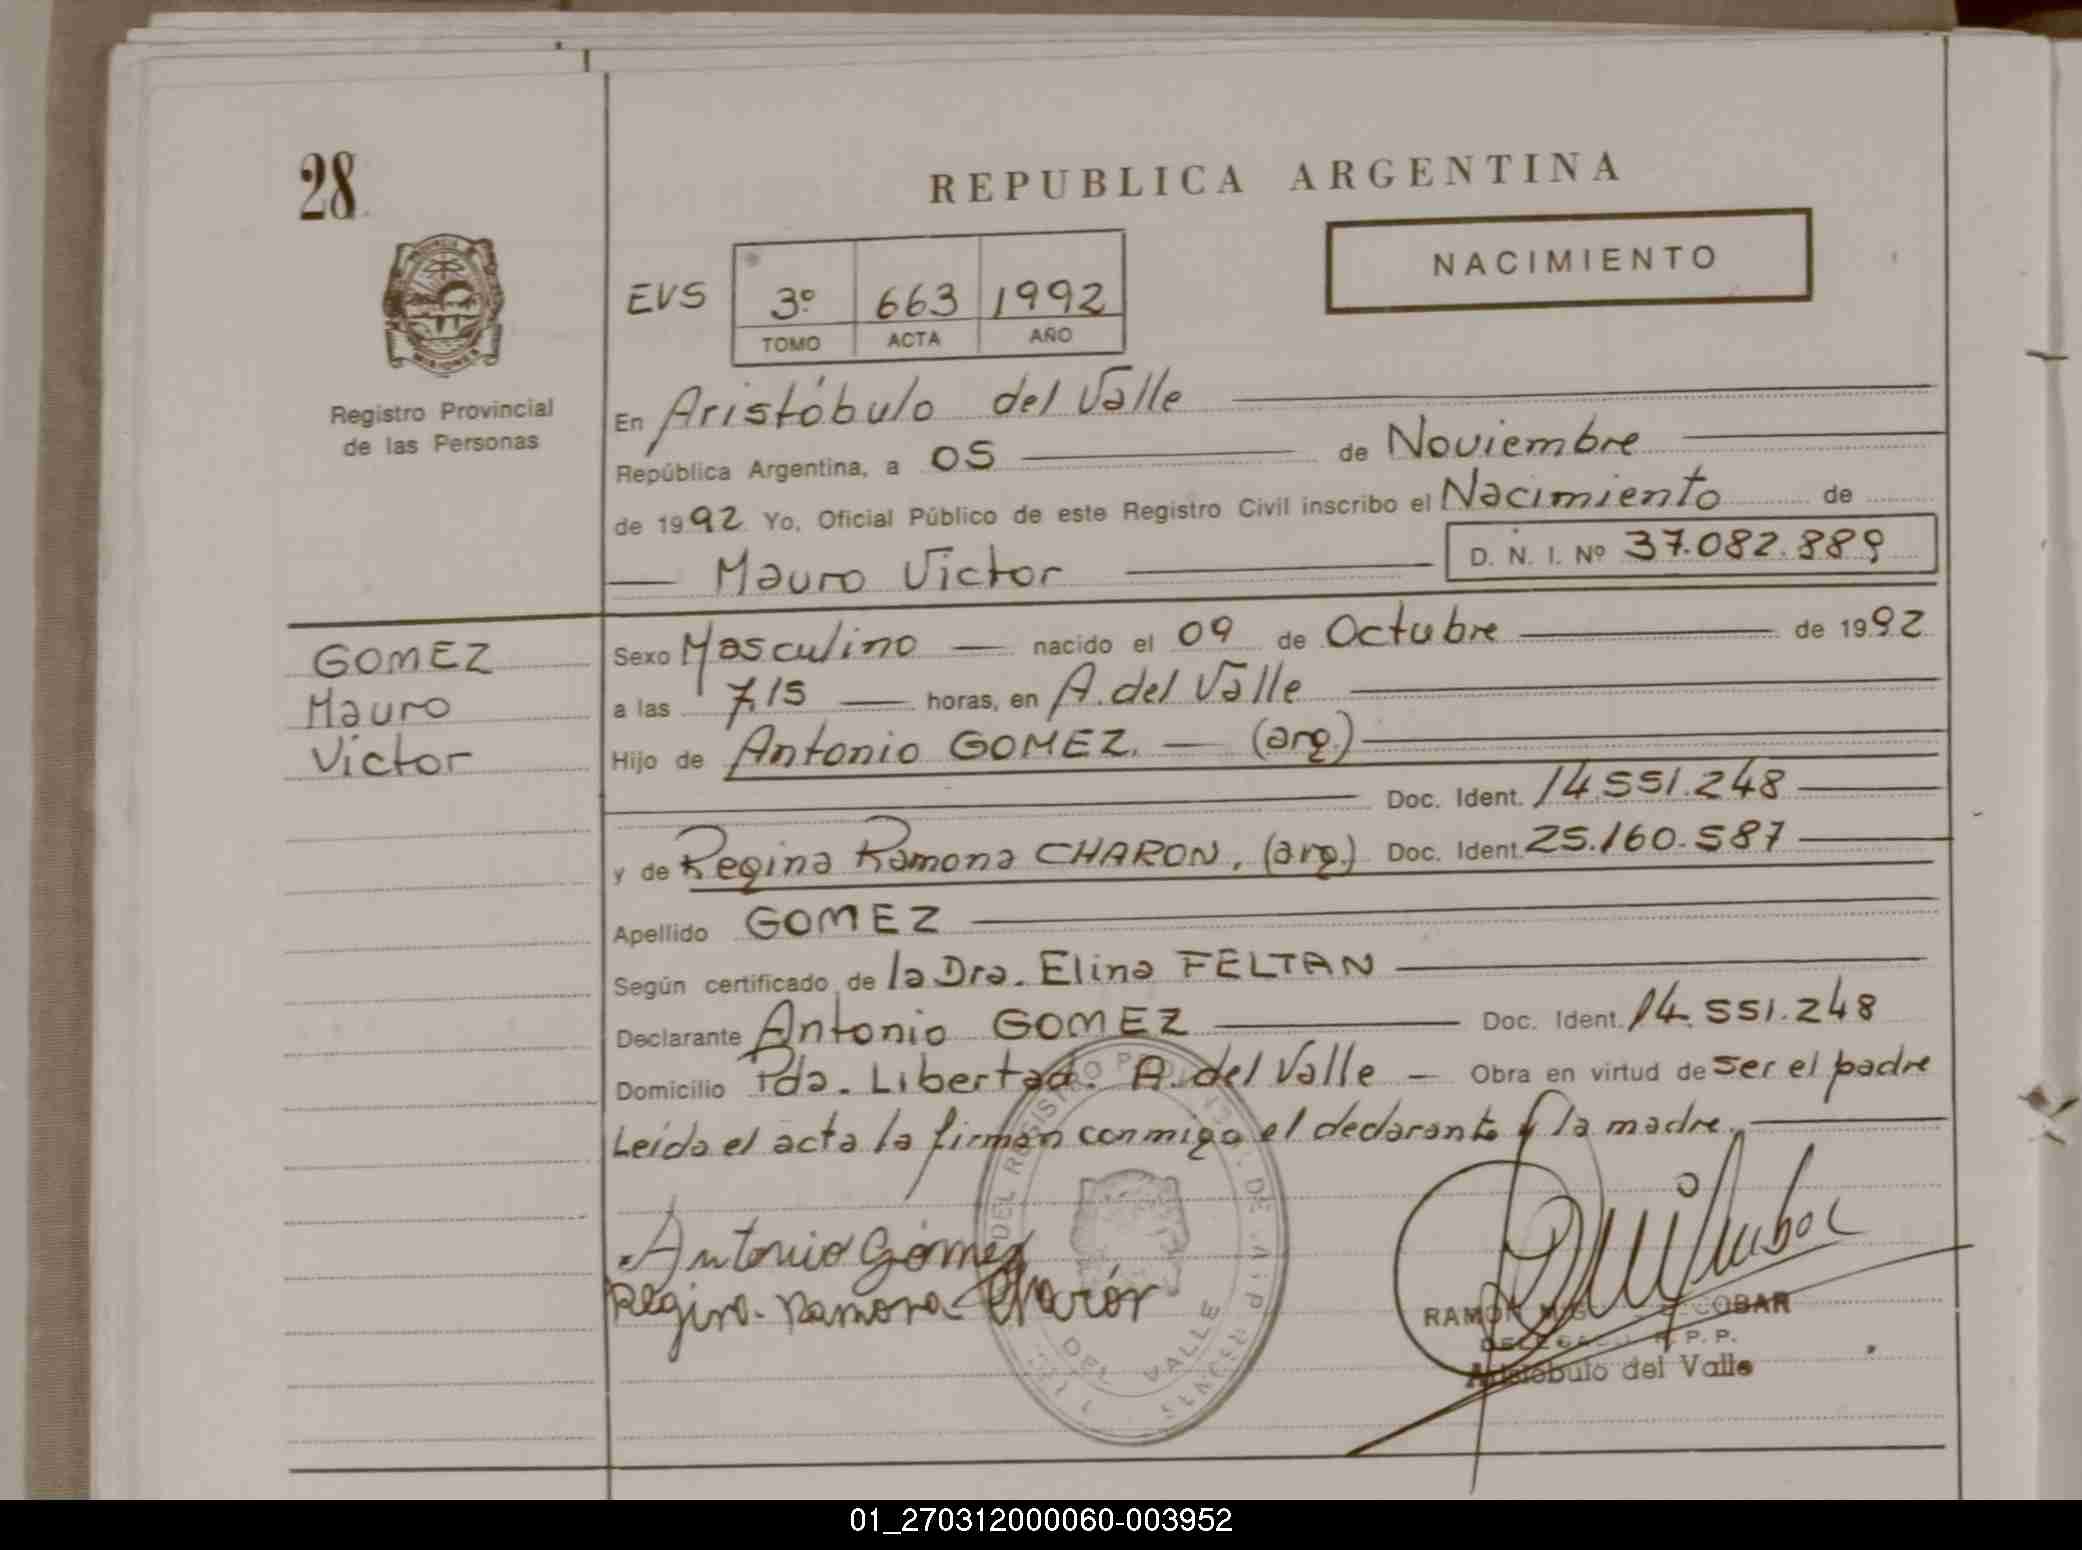 28
REPUBLICA ARGENTINA
NACIMIENTO
EVS 3º 663 1992
TOMO ACTA AÑO
MISIONES
Registro Provincial
de las Personas
En Aristóbulo del Valle
República Argentina, a 05 de Noviembre
de 1992 Yo, Oficial Público de este Registro Civil inscribo el Nacimiento de
Mauro Victor D. N. I. Nº 37.082.889
GOMEZ
Mauro
Victor
Sexo Masculino nacido el 09 de Octubre de 1992
a las 7,15 horas, en A. del Valle
Hijo de Antonio GOMEZ. (arg.)
Doc. Ident. 14.551.248
y de Regina Ramona CHARON, (arg.) Doc. Ident. 25.160.587
Apellido GOMEZ
Según certificado de la Dra. Elina FELTAN
Declarante Antonio GOMEZ Doc. Ident. 14.551.248
Domicilio Pda. Libertad. A. del Valle Obra en virtud de ser el padre
Leída el acta la firman conmigo el declarante y la madre.
Antonio Gómez
Regina Ramona Charón
DEL VALLE
RAMON COBAR
P. P.
Aristóbulo del Valle
01_270312000060-003952